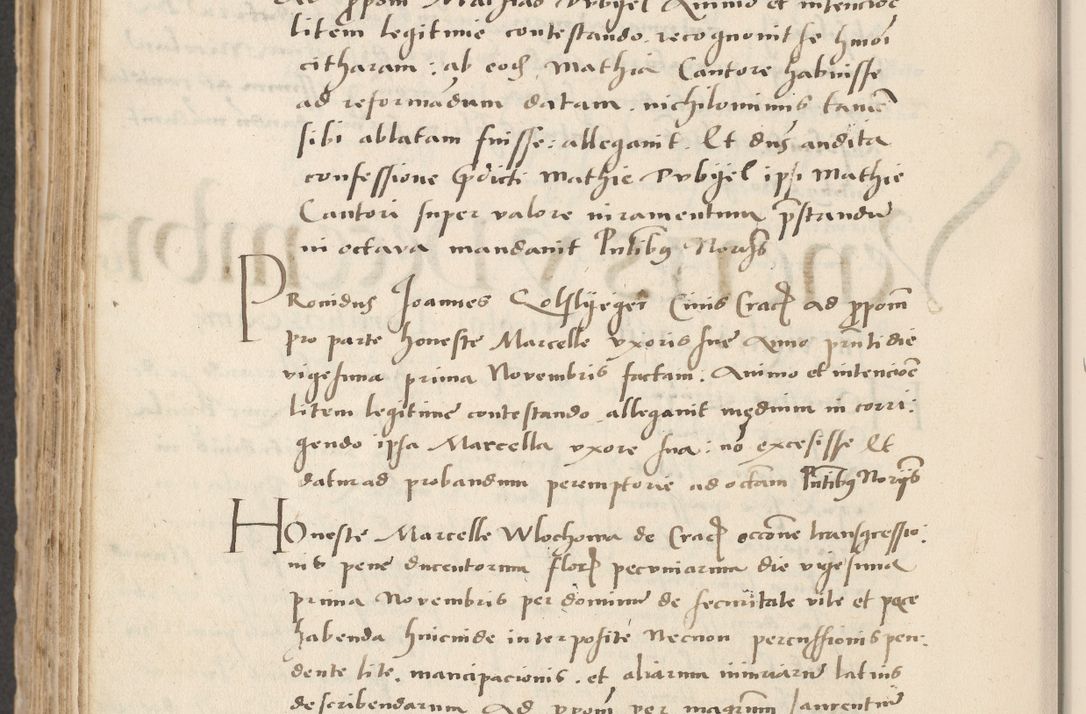 litem legitime contestando. recognovit se hmoi
citharam: ab eodem Mathia Cantore habuisse
ad reformadum datam. nichilominus tamē
sibi ablatam fuisse: allegavit. Et dns audita
confessione pdicti Mathie Dubyel ipsi Mathie
Cantori super valore iuramentum pstandū
in octava mandavit Pntibus Noriis
Providus Joannes Civis Crac ad ppom
pro parte honeste Marcelle uxoris sue Anno pnti die
vigesima prima Novembris factam. Animo et intencioē
litem legitime contestando. allegavit modum in corri-
gendo ipsa Marcella uxore sua: nō excesisse Et
datur ad probandum peremptorie ad octam Pntibus Noriis
Honeste Marcelle Wlochowa de Crac occone transgressio-
nis pene ducentorum flor pecuniarum die vigesima
prima Novembris per dominū de securitate vite et pace
habenda huicinde interposite Necnon percussionis pen-
dente lite. mancipacionis. et aliarum iniuriarū latius
describendarum Ad ppom per magrum Laurentiū